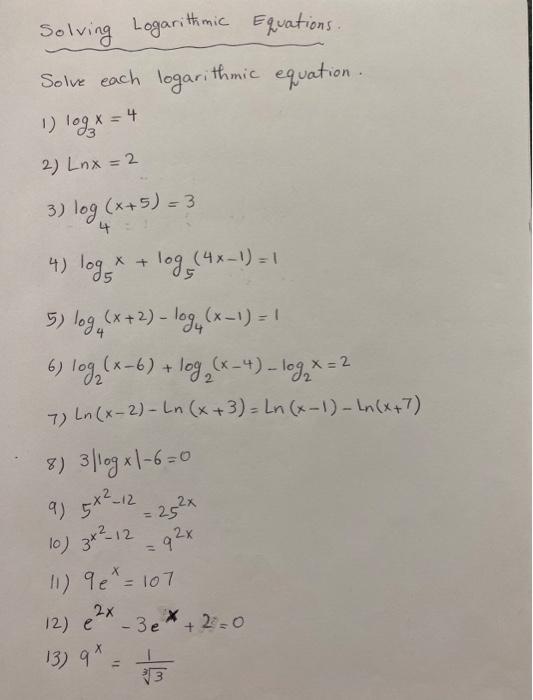 Solving Logarithmic Equations.
Solve each logarithmic equation.
1) log₃x = 4
2) Lnx = 2
3) log₄(x+5) = 3
4) log₅x + log₅(4x-1) = 1
5) log₄(x+2) - log₄(x-1) = 1
6) log₂(x-6) + log₂(x-4) - log₂x = 2
7) Ln(x-2) - Ln(x+3) = Ln(x-1) - Ln(x+7)
8) 3|log x| - 6 = 0
9) 5^{x²-12} = 25^{2x}
10) 3^{x²-12} = 9^{2x}
11) 9eˣ = 107
12) e^{2x} - 3eˣ + 2 = 0
13) 9ˣ = 1/∛3